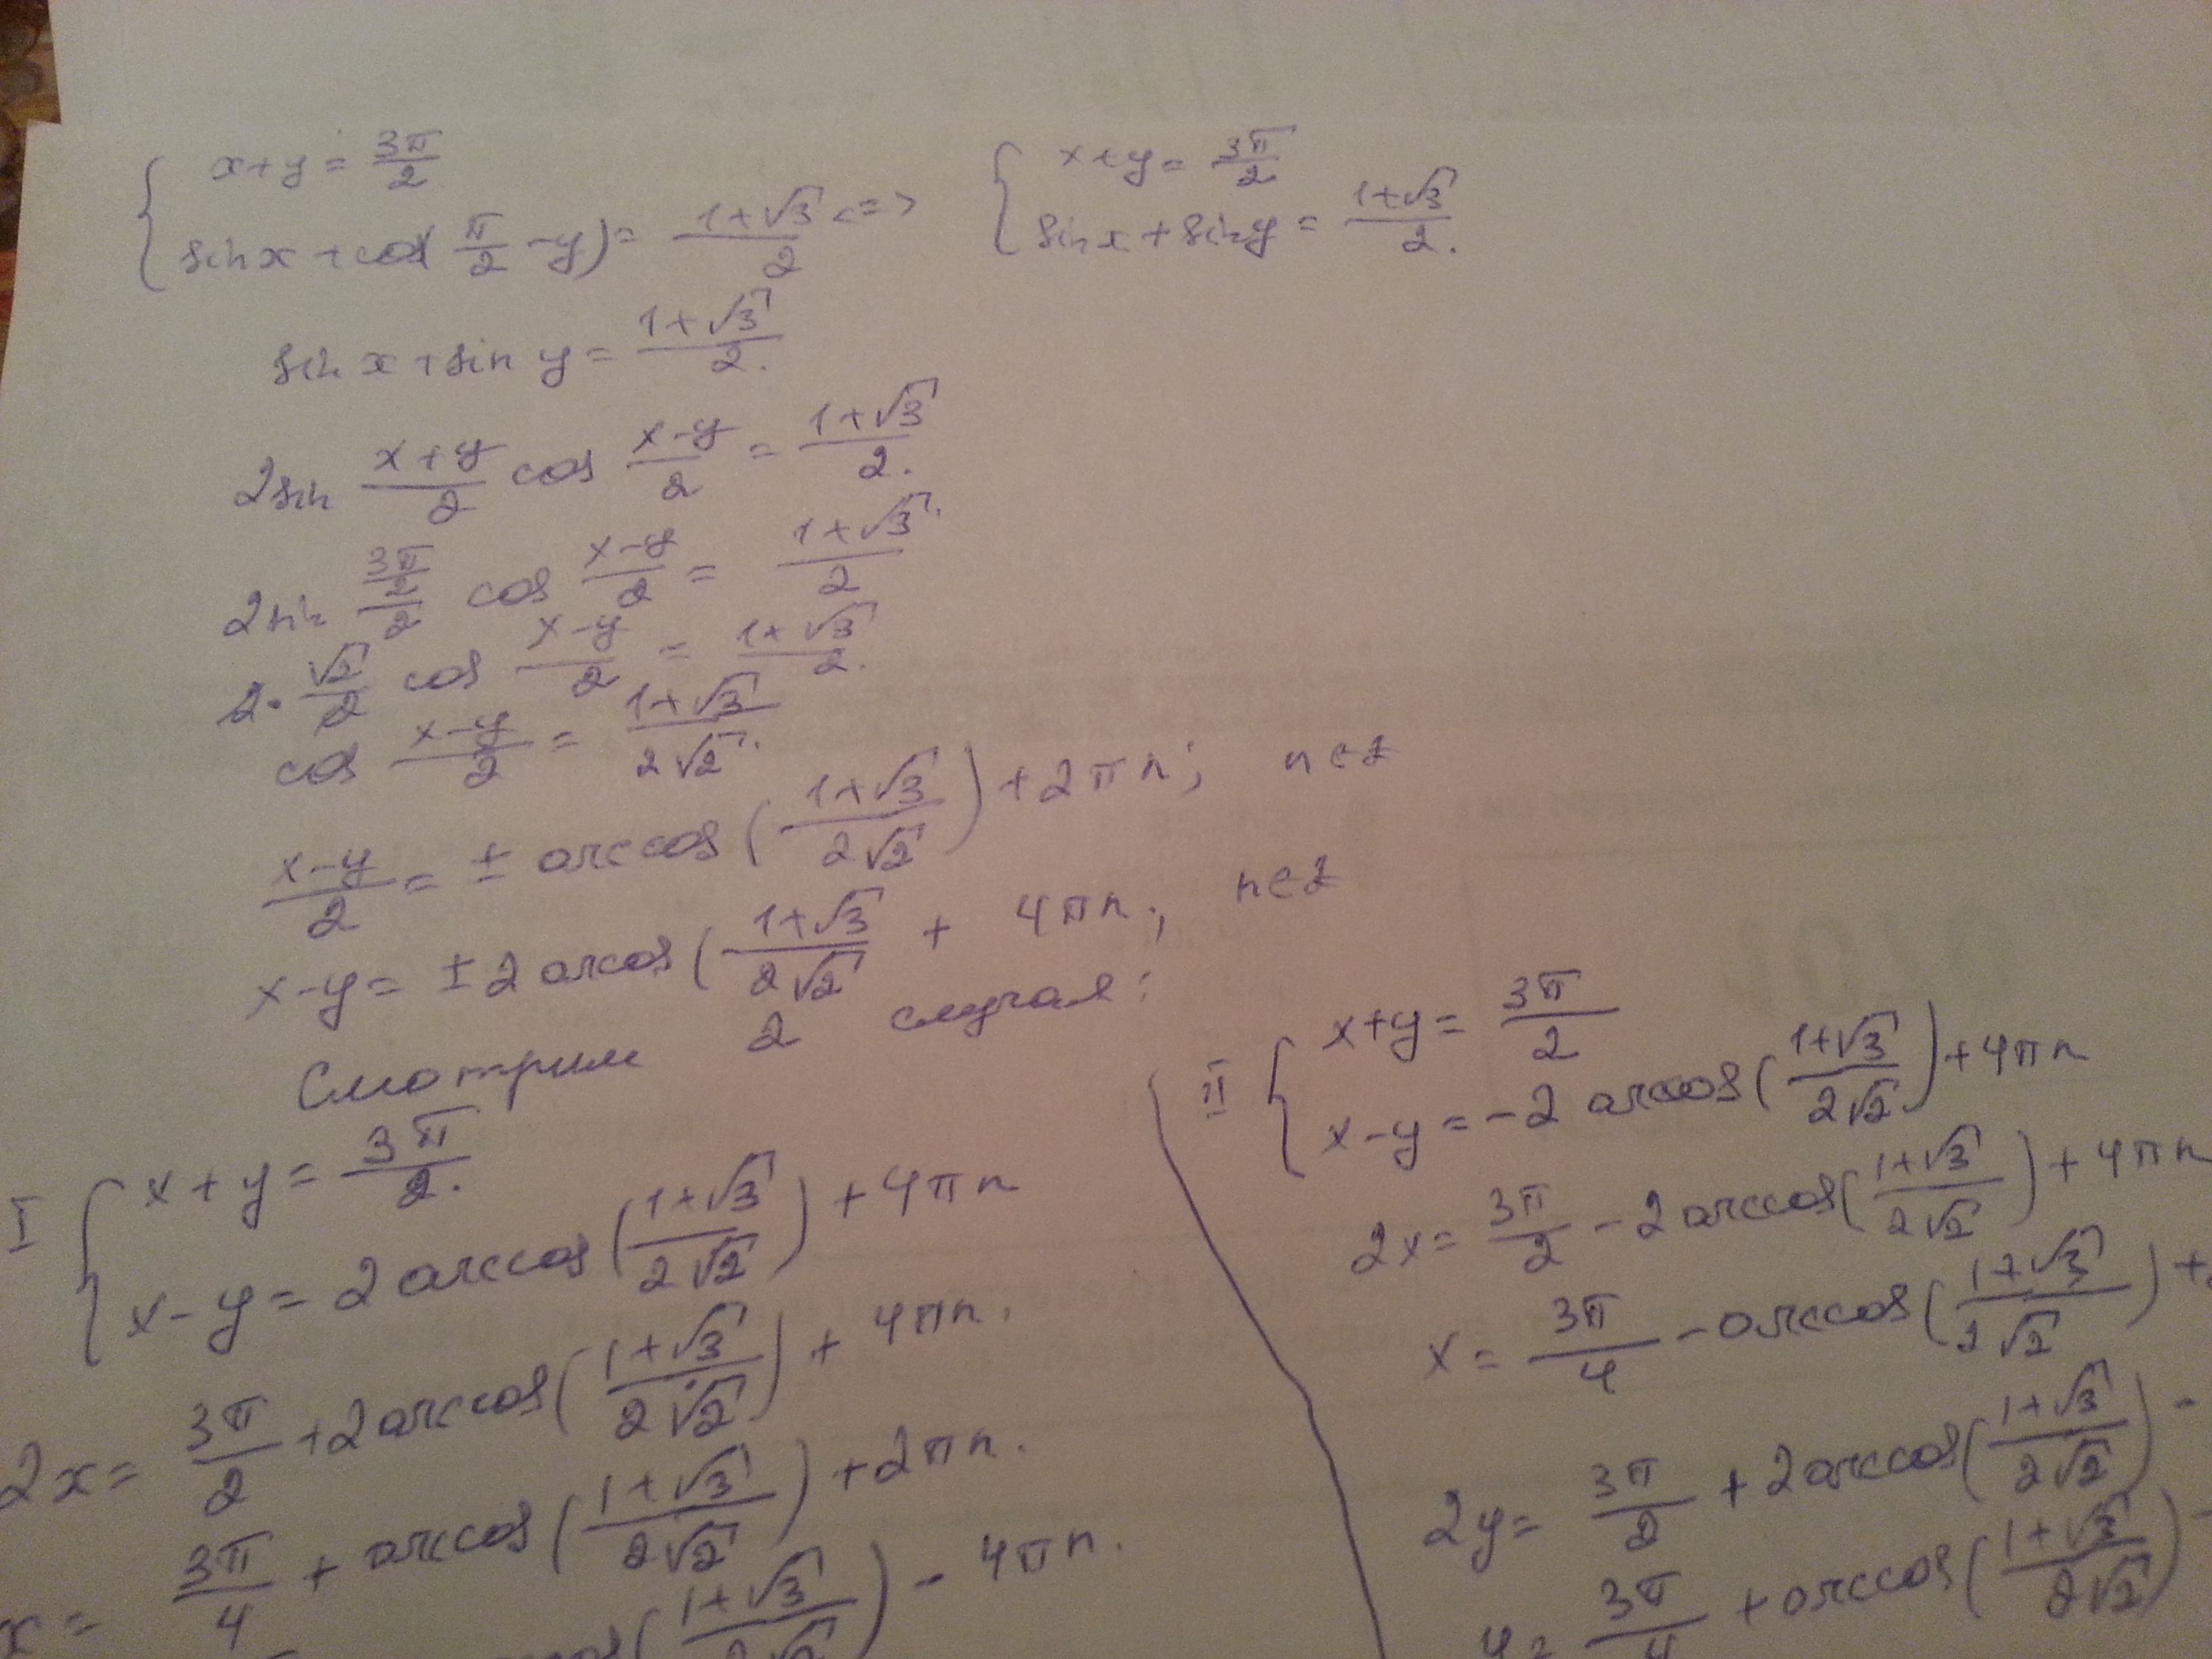 { x+y = 3π/2
sin x + cos(π/2 - y) = (1+√3)/2 <=> { x+y = 3π/2
sin x + sin y = (1+√3)/2.
sin x + sin y = (1+√3)/2.
2 sin (x+y)/2 cos (x-y)/2 = (1+√3)/2.
2 sin (3π/2)/2 cos (x-y)/2 = (1+√3)/2
2 · √2/2 cos (x-y)/2 = (1+√3)/2.
cos (x-y)/2 = (1+√3)/(2√2).
(x-y)/2 = ± arccos((1+√3)/(2√2)) + 2πn; n∈Z
x-y = ± 2 arcos((1+√3)/(2√2) + 4πn; n∈Z
Смотрим 2 случая:
I { x+y = 3π/2.
x-y = 2 arccos((1+√3)/(2√2)) + 4πn
2x = 3π/2 + 2 arccos((1+√3)/(2√2)) + 4πn.
x = 3π/4 + arccos((1+√3)/(2√2)) + 2πn.
(1+√3)/(2√2)) - 4πn.
II { x+y = 3π/2
x-y = -2 arccos((1+√3)/(2√2)) + 4πn
2x = 3π/2 - 2 arccos((1+√3)/(2√2)) + 4πn
x = 3π/4 - arccos((1+√3)/(2√2)) +
2y = 3π/2 + 2 arccos((1+√3)/(2√2)) -
y = 3π/4 + arccos((1+√3)/(2√2)) -